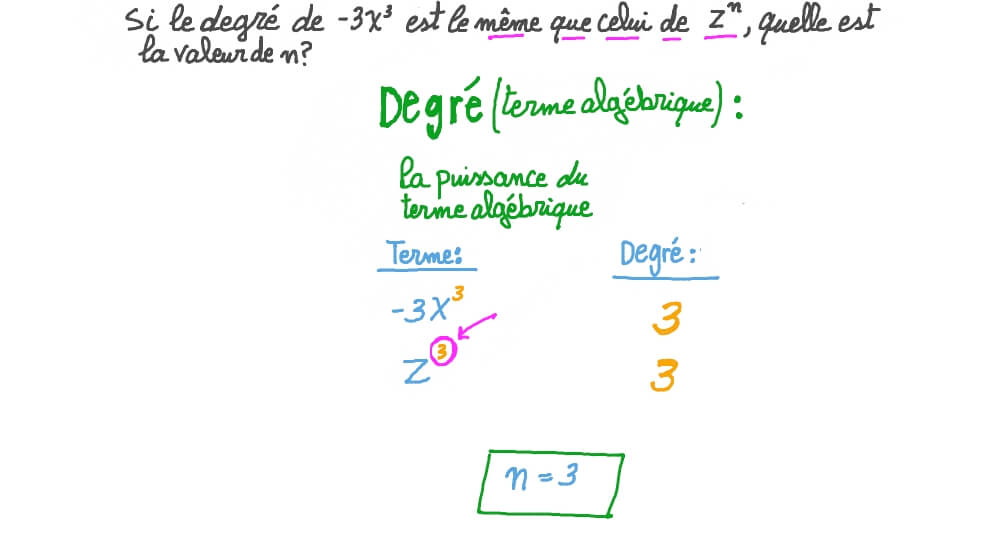 Si le degré de -3x³ est le même que celui de zⁿ, quelle est
la valeur de n?
Degré (terme algébrique) :
la puissance du
terme algébrique
Terme: Degré :
-3x³ 3
z³ 3
n = 3